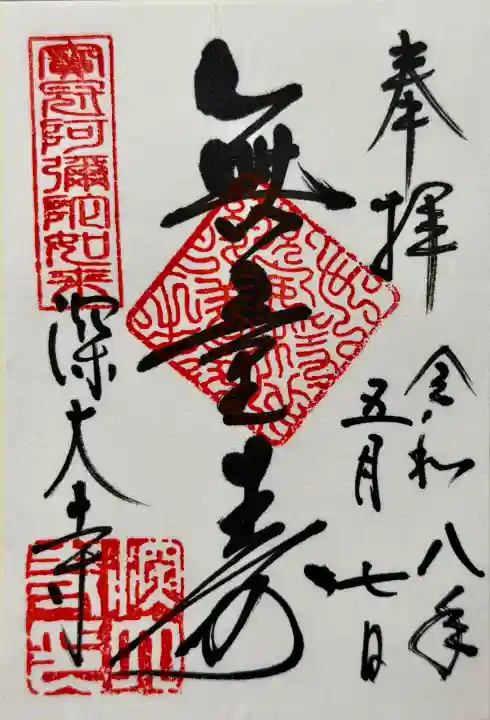 奉拝
令和八年
五月七日
無量寿
寳冠阿彌陀如来
深大寺